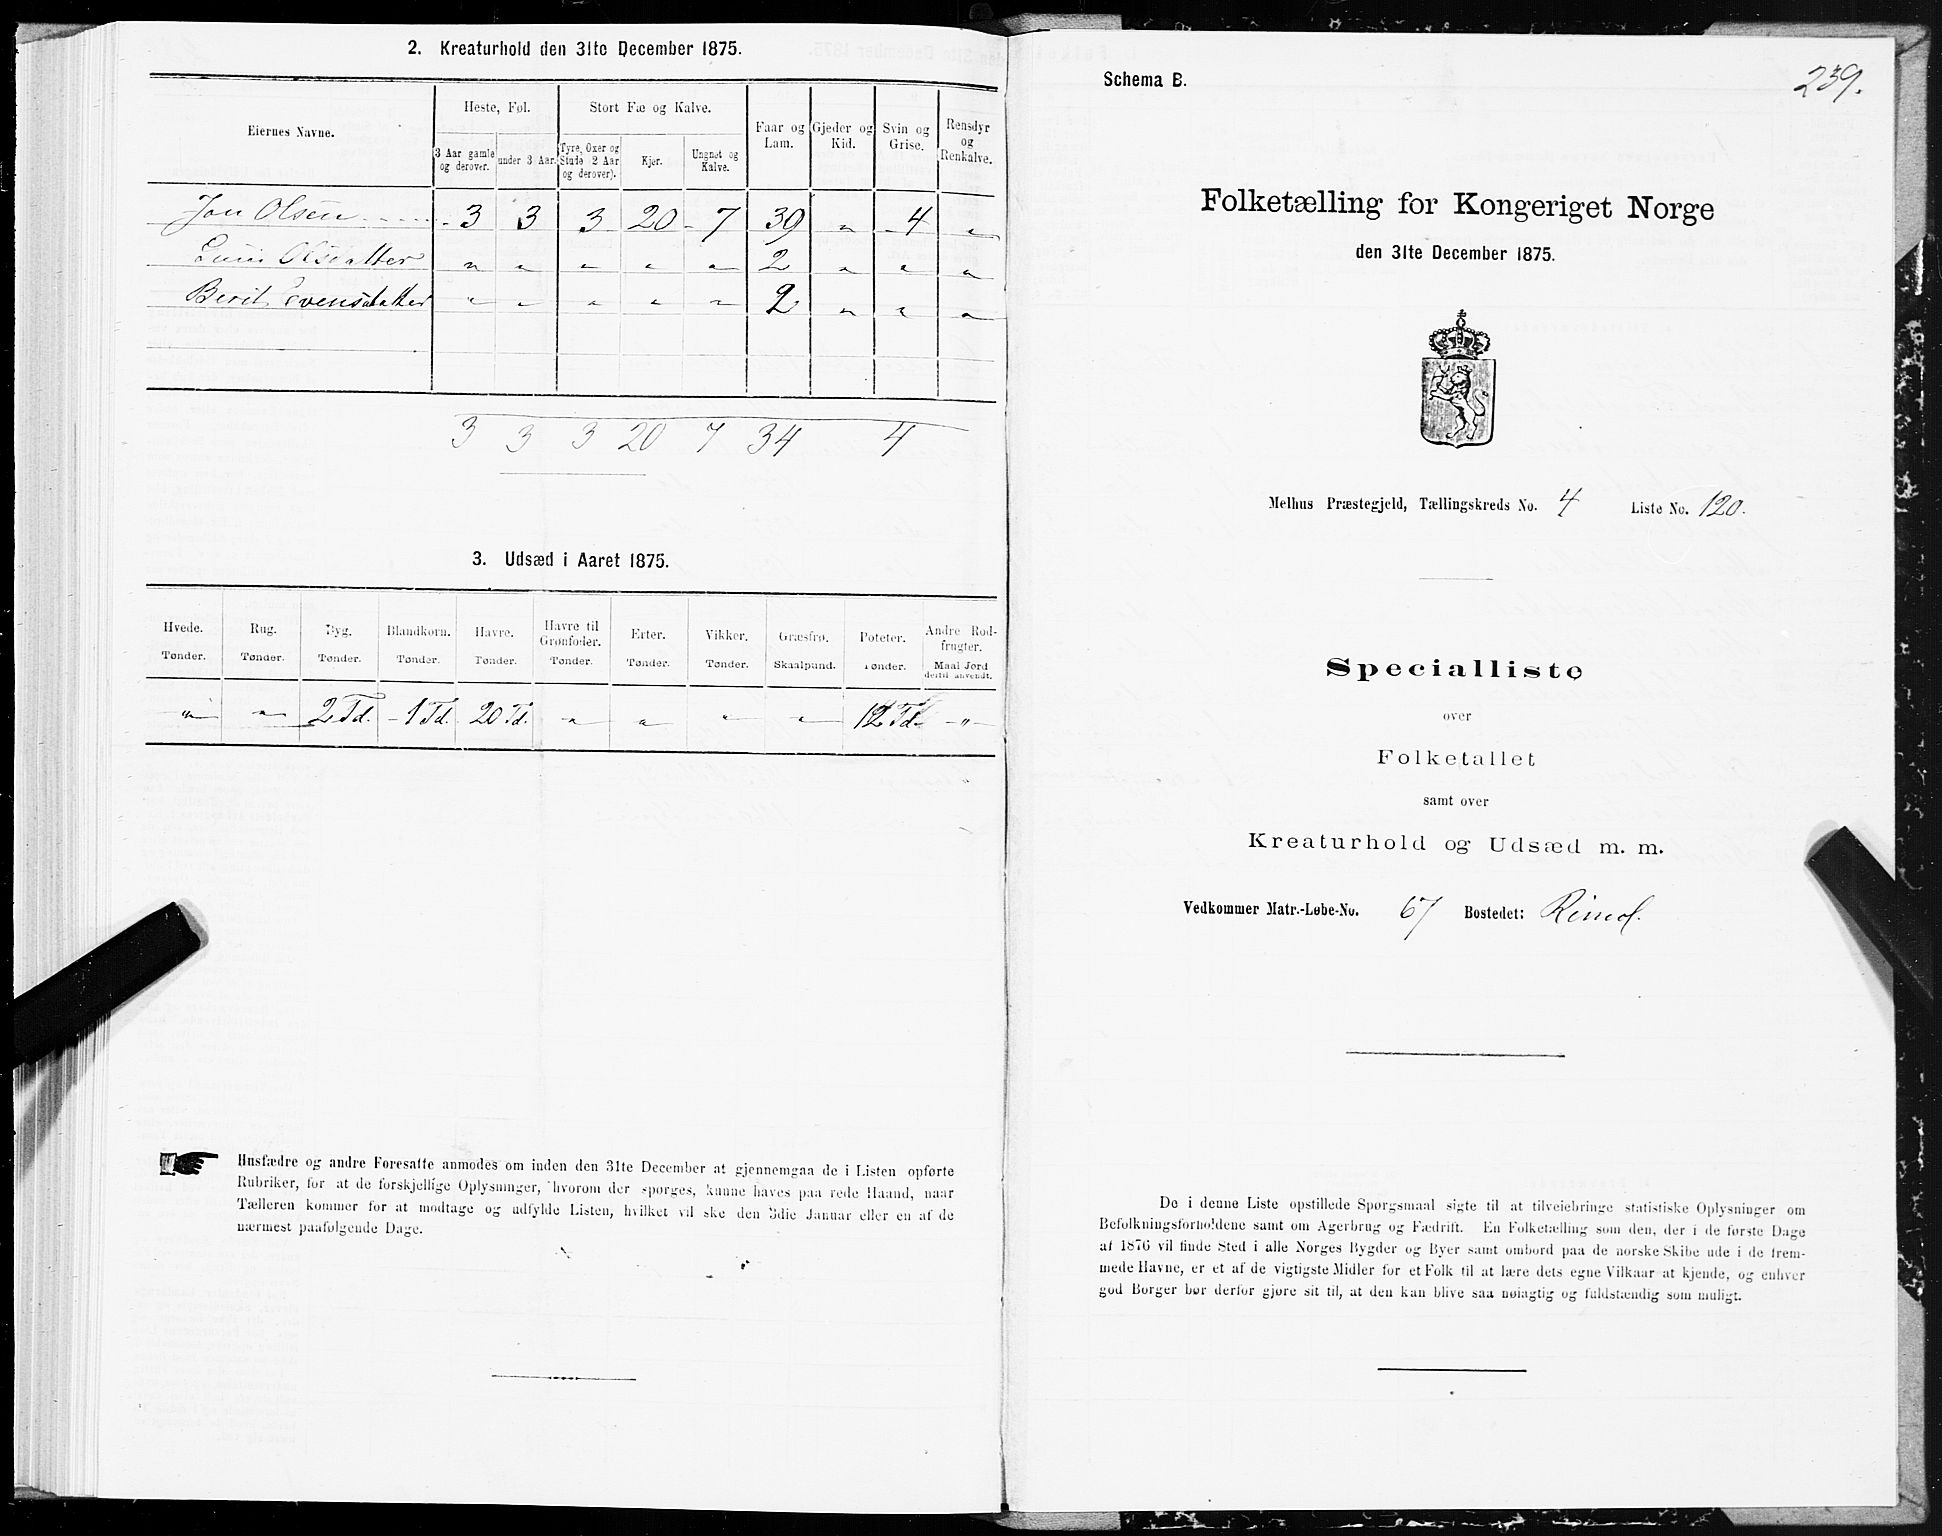 2. Kreaturhold den 31te December 1875.
Eiernes Navne.
Heste, Føl.
Stort Fæ og Kalve.
Faar og Lam.
Gjeder og Kid.
Svin og Grise.
Rensdyr og Renkalve.
3 Aar gamle og derover.
under 3 Aar.
Tyre, Oxer og Stude (2 Aar og derover).
Kjer.
Ungnøt og Kalve.
Jon Olsen 3 3 3 20 7 39 " 4 "
Olsdatter " " " " " 2 " " "
Berit Evensdatter " " " " " 2 " " "
3 3 3 20 7 34 4
3. Udsæd i Aaret 1875.
Hvede. Rug. Byg. Blandkorn. Havre. Havre til Grønfoder. Erter. Vikker. Græsfrø. Poteter. Andre Rodfrugter.
Tønder. Tønder. Tønder. Tønder. Tønder. Tønder. Tønder. Tønder. Skaalpund. Tønder. Maal Jord dertil anvendt.
" " 2 Td. 1 Td. 20 Td. " " " " 12 Td. "
Husfædre og andre Foresatte anmodes om inden den 31te December at gjennemgaa de i Listen opførte
Rubriker, for at de forskjellige Oplysninger, hvorom der spørges, kunne haves paa rede Haand, naar
Tælleren kommer for at modtage og udfylde Listen, hvilket vil ske den 3die Januar eller en af de
nærmest paafølgende Dage.
Schema B.
239.
Folketælling for Kongeriget Norge
den 31te December 1875.
Melhus Præstegjeld, Tællingskreds No. 4 Liste No. 120.
Specialliste
over
Folketallet
samt over
Kreaturhold og Udsæd m. m.
Vedkommer Matr.-Løbe-No. 67 Bostedet: Rimol.
De i denne Liste opstillede Spørgsmaal sigte til at tilveiebringe statistiske Oplysninger om
Befolkningsforholdene samt om Agerbrug og Fædrift. En Folketælling som den, der i de første Dage
af 1876 vil finde Sted i alle Norges Bygder og Byer samt ombord paa de norske Skibe ude i de frem-
mede Havne, er et af de vigtigste Midler for et Folk til at lære dets egne Vilkaar at kjende, og enhver
god Borger bør derfor gjøre sit til, at den kan blive saa nøiagtig og fuldstændig som muligt.